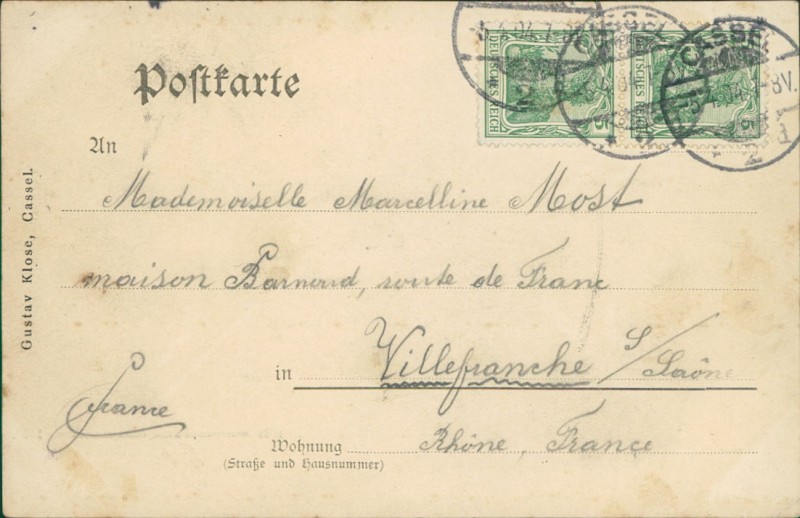 Postkarte
CASSEL
DEUTSCHES REICH
5
DEUTSCHES REICH
5
An
Mademoiselle Marcelline Most
maison Barnoud, route de Franc
in Villefranche s/Saône
France
Wohnung Rhône, France
(Straße und Hausnummer)
Gustav Klose, Cassel.